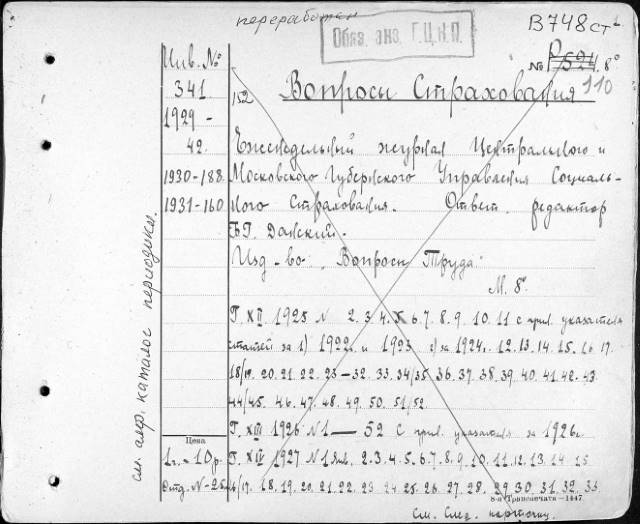 переработан
Обяз. экз. Г.Ц.К.П.
В748 ст
№ 8°
110
Инв. №
341
1929 -
42.
1930-188
1931-160
152 Вопросы Страхования
Еженедельный журнал Центрального и
Московского Губернского Управления Социаль-
ного Страхования. Ответ. редактор
Б.Г. Данский.
Изд-во: "Вопросы Труда"
М. 8°
Г. XII 1925 № 2.3.4.5.6.7.8.9.10.11 с прил. указателя
статей за 1) 1922 и 1923 2) за 1924г. 12.13.14.15.16.17.
18/19.20.21.22.23-32.33.34/35.36.37.38.39.40.41.42.43
44/45.46.47.48.49.50.51/52.
Г. XIII 1926 №1 — 52 с прил. указателя за 1926г.
Г. XIV 1927 №1 2.3.4.5.6.7.8.9.10.11.12.13.14.15
16/17.18.19.20.21.22.23.24.25.26.27.28.29.30.31.32.33
Цена
1 г. - 10 р.
Отд. № - 25к
8-я Транспечать-1447.
См. след. карточку.
см. алф. каталог периодики.